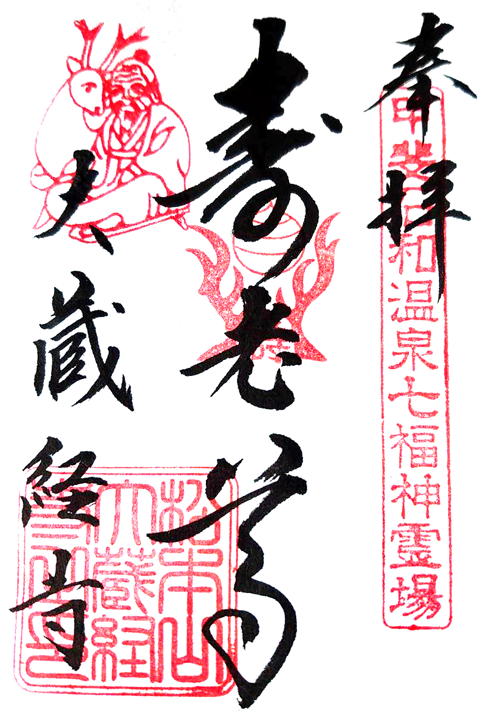 奉拝
甲斐石和温泉七福神霊場
寿老尊
大蔵経寺
松本山
大蔵経
寺之印